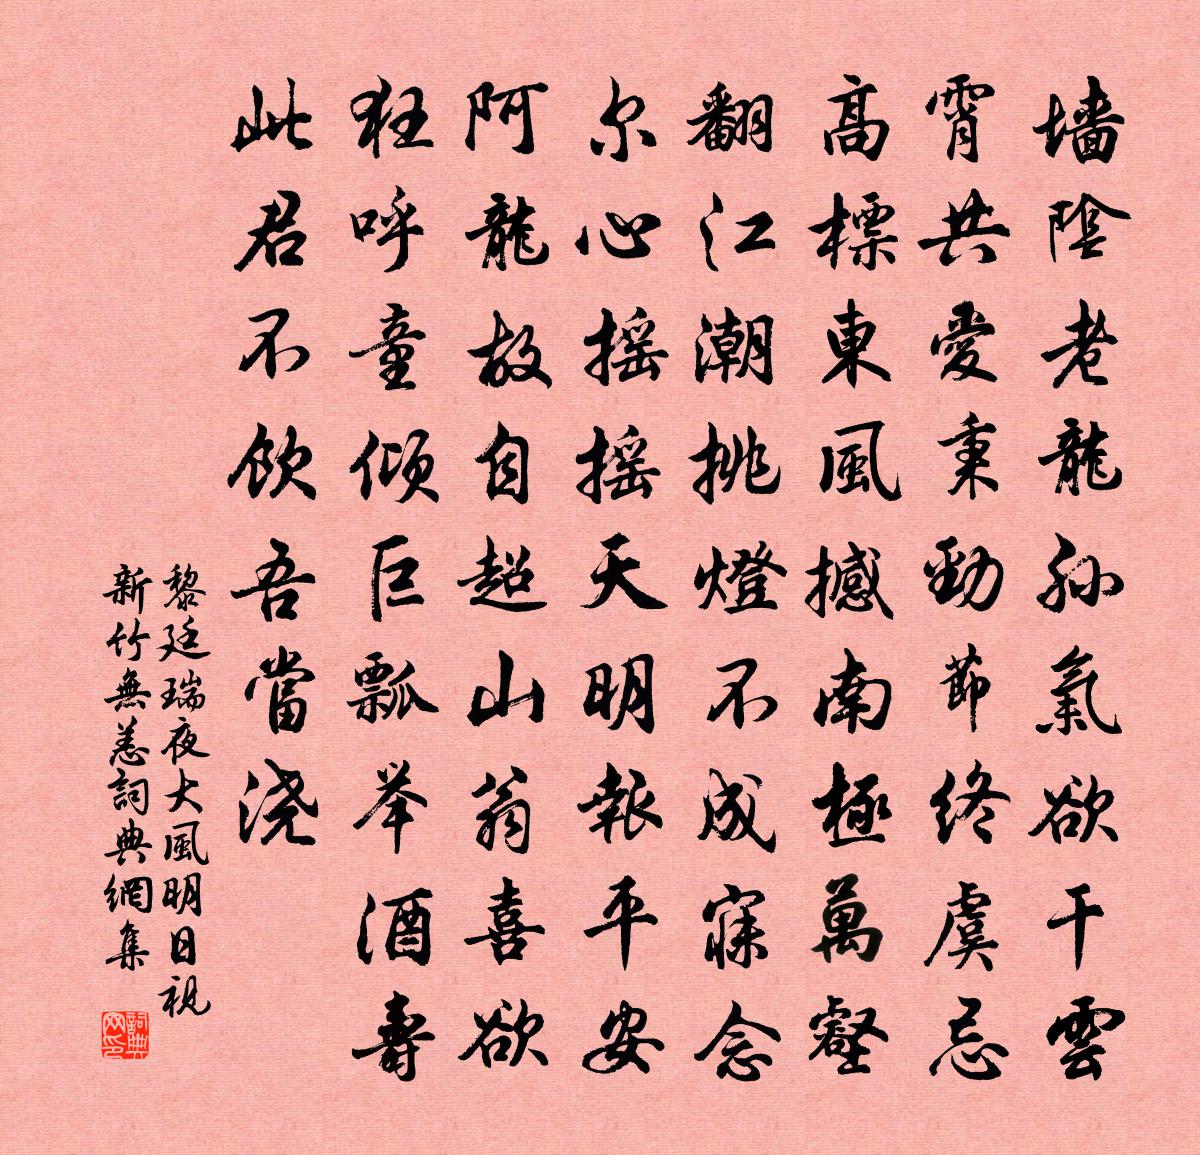 墻陰老龍孫氣欲干雲
霄共愛秉勁節終虞忌
高標東風撼南極萬壑
翻江潮挑燈不成寐念
尔心摇摇天明報平安
阿龍故自超山翁喜欲
狂呼童傾巨瓢举酒壽
此君不飲吾當浇
黎廷瑞夜大風明日視
新竹無恙詞典網集
詞典网印